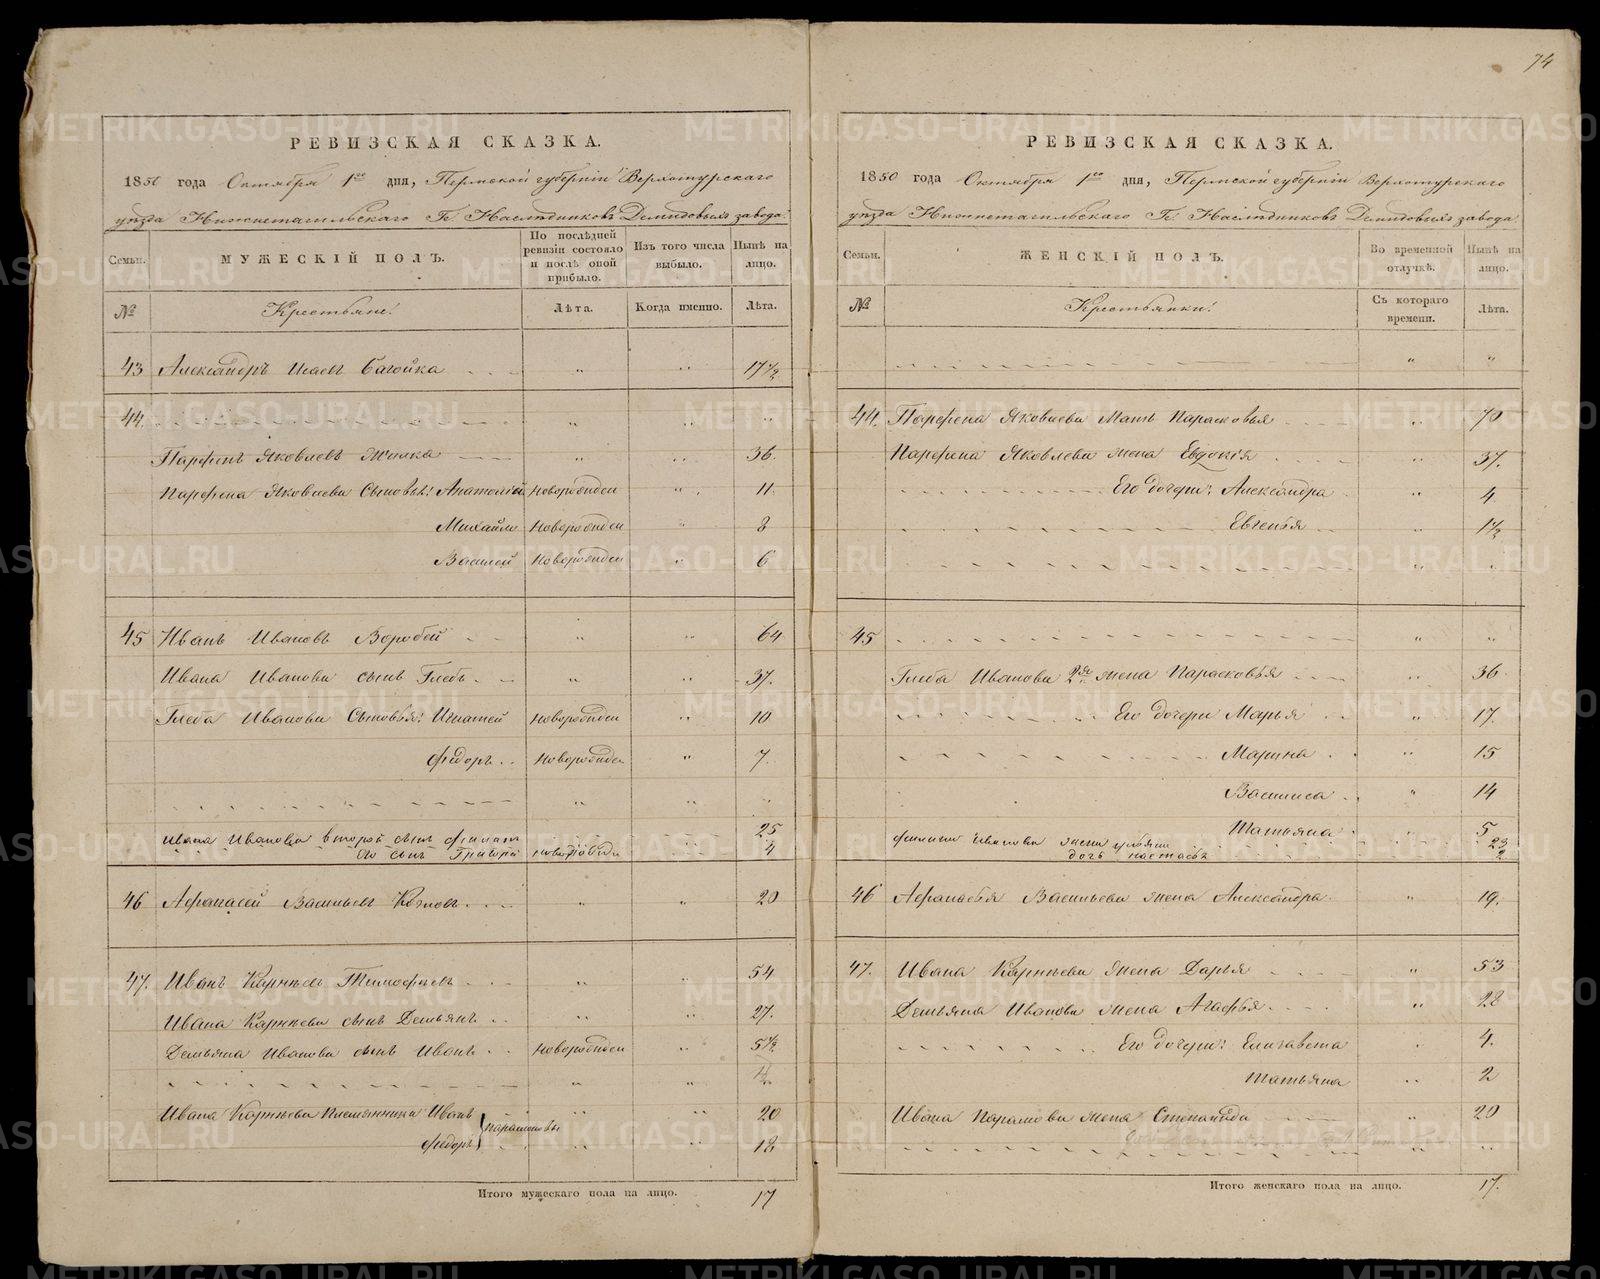 74
РЕВИЗСКАЯ СКАЗКА.
1850 года Октября 1го дня, Пермской губерніи Верхотурскаго
уѣзда Нижнетагильскаго Гг. Наслѣдниковъ Демидовыхъ завода.
Семьи.
МУЖЕСКІЙ ПОЛЪ.
По послѣдней ревизіи состояло и послѣ оной прибыло.
Изъ того числа выбыло.
Нынѣ на лицо.
№
Крестьяне:
Лѣта.
Когда именно.
Лѣта.
43 Александръ Исаевъ 17 1/2
44.
Парфенъ Яковлевъ 36.
Парфена Яковлева Сыновья: Анатолій новорожден 11.
Михайло новорожден 8
Василей новорожден 6
45 Иванъ Ивановъ Воробей 64
Ивана Иванова сынъ Глебъ 37.
Глеба Иванова Сыновья: Игнатей новорожден 10
Федоръ новорожден 7.
Ивана Иванова второй сынъ Филатъ 25
Его сынъ Григорей новорожден 4
46 Афанасей Васильевъ Козловъ 20
47. Иванъ Карнѣевъ Тимофеевъ 54
Ивана Карнѣева сынъ Демьянъ 27.
Демьяна Иванова сынъ Иванъ новорожден 5 1/2
Ивана Карнѣева Племянники Иванъ 20
Парамоновы
Федоръ 18
Итого мужескаго пола на лицо. 17
РЕВИЗСКАЯ СКАЗКА.
1850 года Октября 1го дня, Пермской губерніи Верхотурскаго
уѣзда Нижнетагильскаго Гг. Наслѣдниковъ Демидовыхъ завода.
Семьи.
ЖЕНСКІЙ ПОЛЪ.
Во временной отлучкѣ.
Нынѣ на лицо.
№
Крестьянки:
Съ котораго времени.
Лѣта.
44. Парфена Яковлева Мать Парасковья 70
Парфена Яковлева жена Евдокія 37.
Его дочери: Александра 4
Евгенья 1 1/2
45
Глеба Иванова 2я жена Парасковья 36
Его дочери Марья 17.
Марина 15
Василиса 14
Татьяна 5
Иванова жена 23
дочь Настасья 2
46 Афанасья Васильева жена Александра 19.
47. Ивана Карнѣева жена Дарья 53
Демьяна Иванова жена Агафья 28
Его дочери: Елизавета 4.
Татьяна 2
Ивана Парамонова жена Степанида 20
Итого женскаго пола на лицо. 17.
METRIKI.GASO-URAL.RU